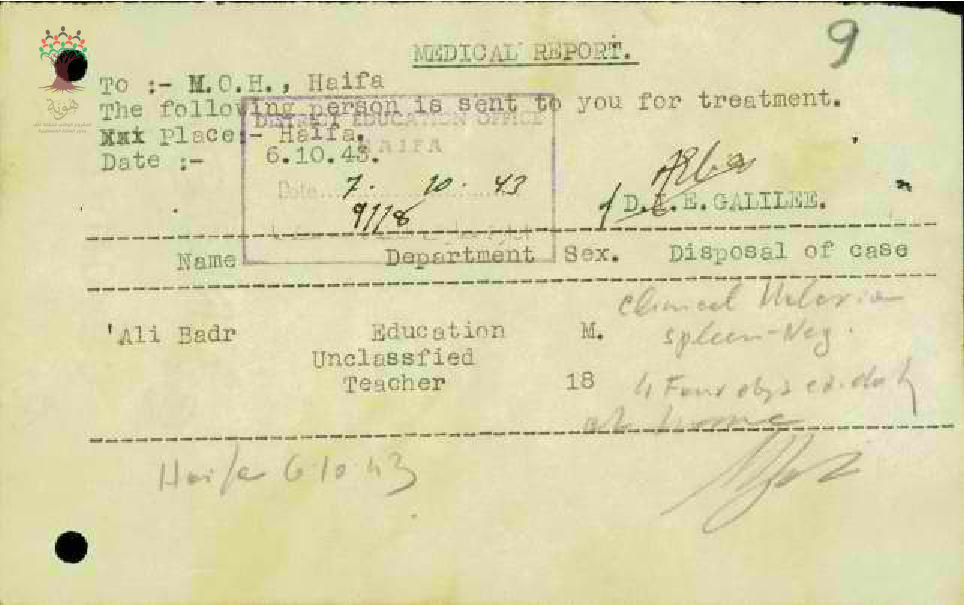 9
MEDICAL REPORT.
To :- M.O.H., Haifa
The following person is sent to you for treatment.
Place:- Haifa.
Date :- 6.10.43.
DISTRICT EDUCATION OFFICE
HAIFA
Date 7. 10. 43
9/18
D.I.E. GALILEE.
Name Department Sex. Disposal of case
'Ali Badr Education M.
Unclassfied
Teacher 18
Clinical Malaria
Spleen-Neg.
4 Four days
at home
Haifa 6 10 43
هوية